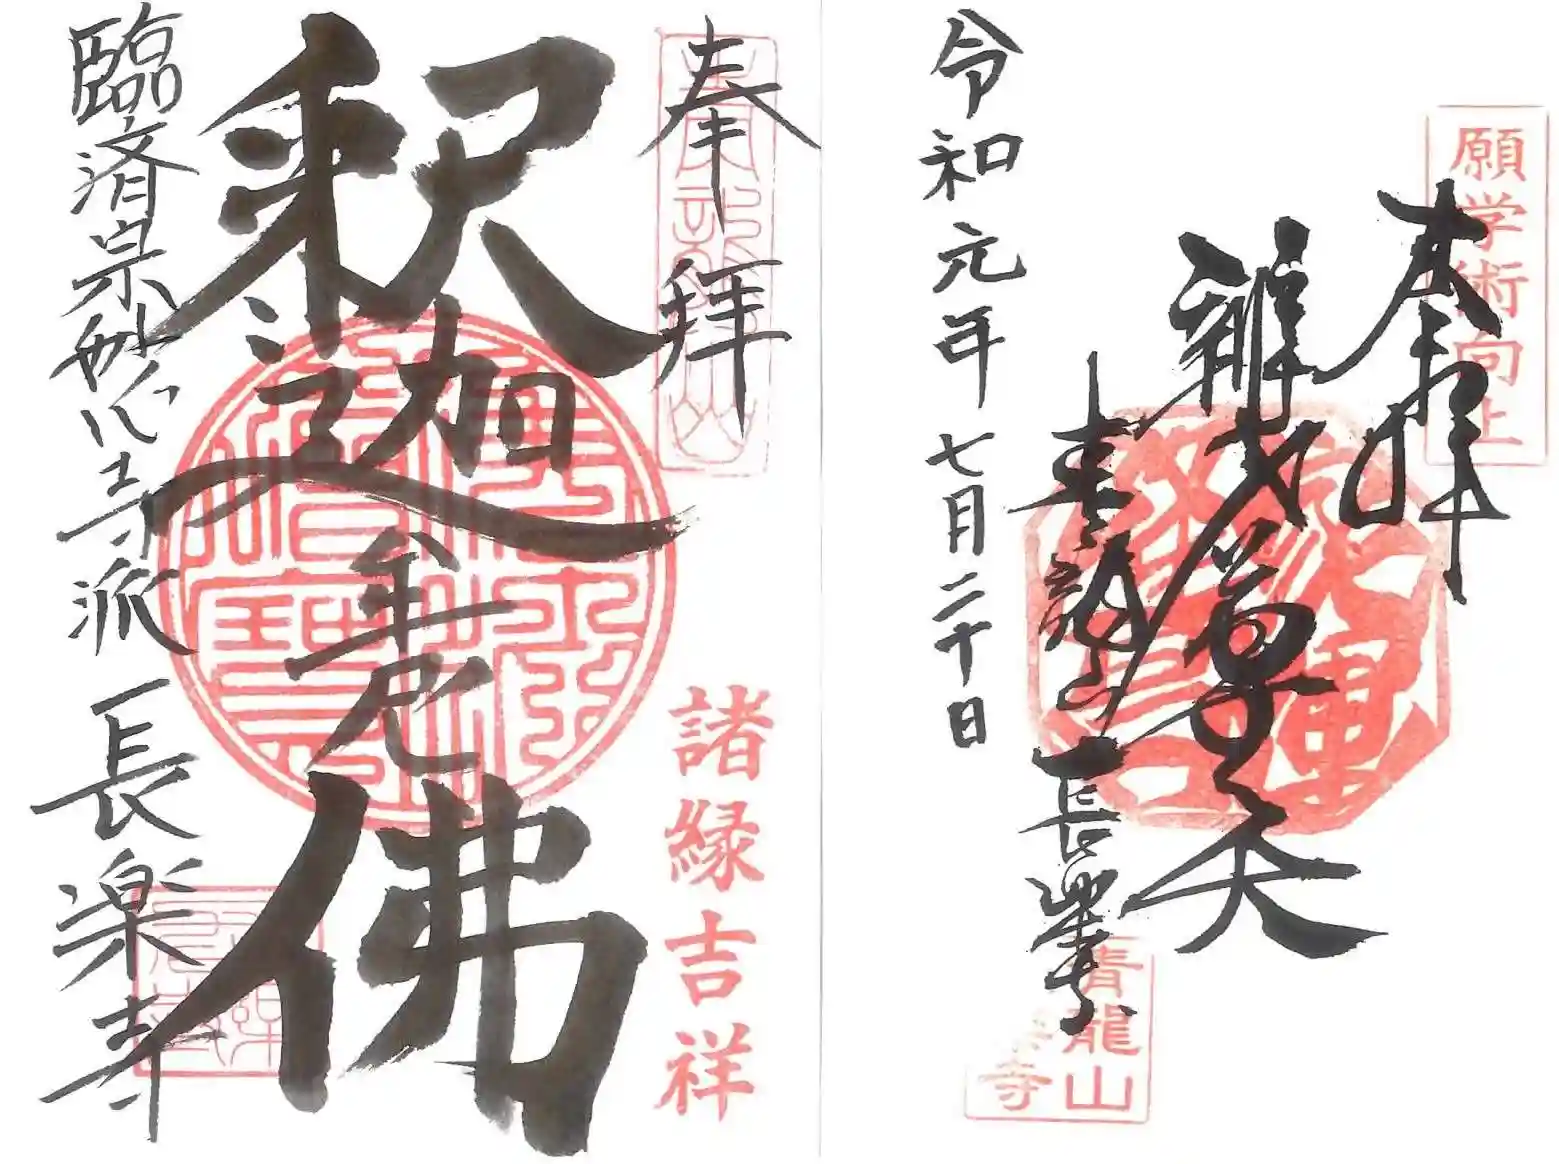 願学術向上
奉拝
辨才尊天
青龍山
長楽寺
令和元年七月二十日
青龍山
寺
奉拝
釈迦牟尼佛
諸縁吉祥
臨済宗妙心寺派
長楽寺